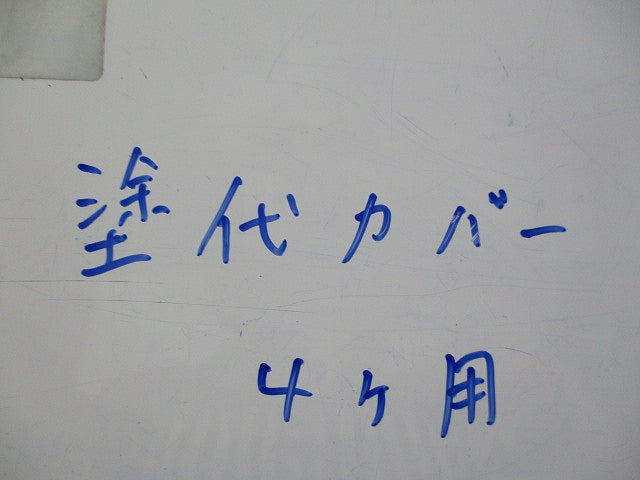 塗代カバー
4ヶ用